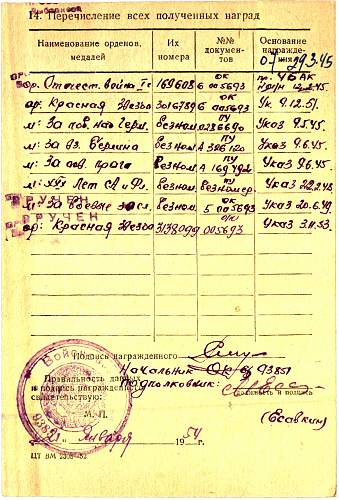 14. Перечисление всех полученных наград
Наименование орденов, медалей
Их номера
№№ документов
Основание награждения
ор. Отечест. войны Iс 169608 ОК Б 005693 пр. 4БАК
ор: Красная Звезда 3016789 Б 005693 Ук. 9.12.51.
м: За поб. над Герм. безном. ПУ 0236690 Указ 9.5.45.
м: За вз. Берлина безном. ПУ А 386120 Указ 9.6.45.
м: За осв. Прага безном. ПУ А 169492 Указ 9.6.45.
м: XXX Лет СА и Фл. безном. безномер. Указ 22.2.48.
м: За боевые засл. безном. ОК Б 005693 Указ 20.6.49.
ВРУЧЕН
ор: Красная Звезда 3138099 005693 Указ 3.11.53.
Подпись награжденного
Начальник 93851
Правильность данных и подпись награжденного свидетельствую:
Подполковник:
Должность и подпись
М. П.
(Есавкин)
"21" Января 1954 г.